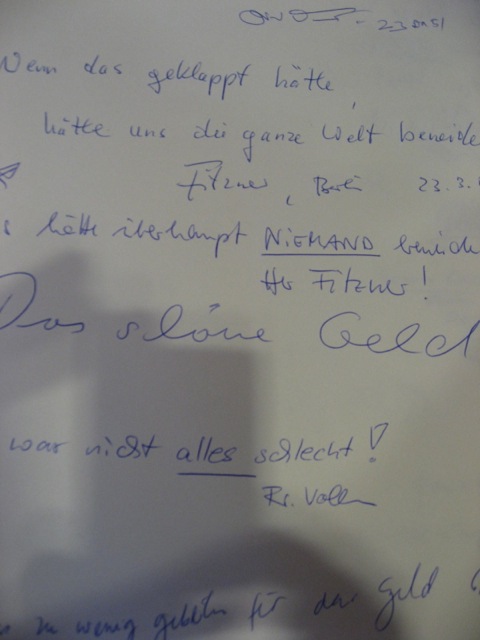 23.
Wenn das geklappt hätte,
hätte uns die ganze Welt beneide
Fitzner, Berlin 23.3.
s hätte überhaupt NIEMAND beneide
Herr Fitzner!
Das schöne Geld
war nicht alles schlecht!
zu wenig geboten für das Geld